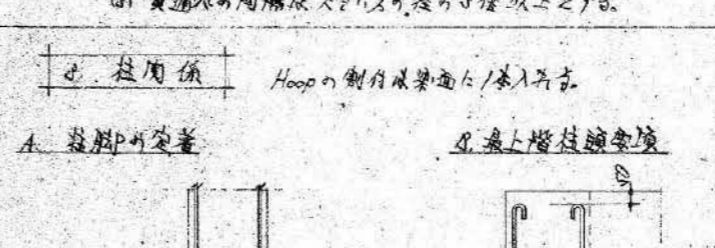 (3) 貫通孔の間隔はスリーブの径の3倍以上とする。
8. 柱関係
Hoopの割付は梁面に1本入れる。
A 柱脚Pの定着
B. 最上階柱頭要領
50